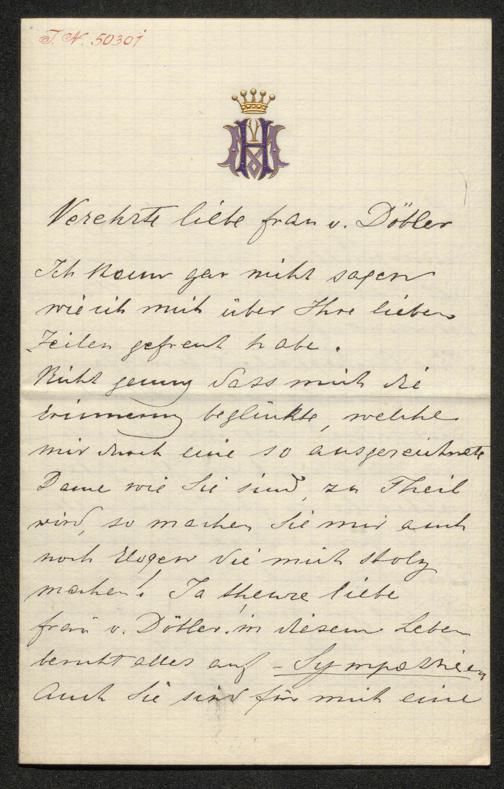 I. N. 50301
Verehrte liebe Frau v. Döbler
Ich kann gar nicht sagen
wie ich mich über Ihre lieben
Zeilen gefreut habe.
Nicht genug dass mich die
Erinnerung beglückte, welche
mir durch eine so ausgezeichnete
Dame wie Sie sind, zu Theil
wird, so machen Sie mir auch
noch Elogen die mich stolz
machen! Ja theure liebe
Frau v. Döbler in diesem Leben
beruht alles auf - Sympathien,
Auch Sie sind für mich eine